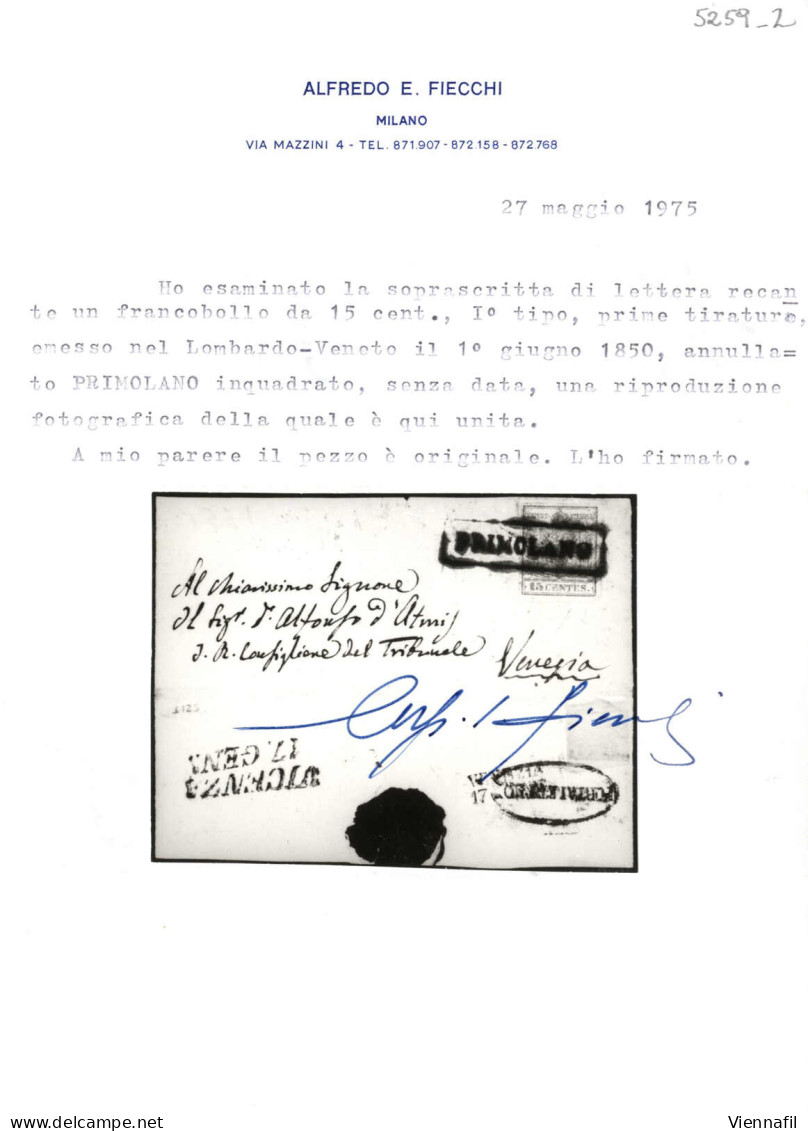 5259_2
ALFREDO E. FIECCHI
MILANO
VIA MAZZINI 4 - TEL. 871.907 - 872.158 - 872.768
27 maggio 1975
Ho esaminato la soprascritta di lettera recan
te un francobollo da 15 cent., I° tipo, prime tirature,
emesso nel Lombardo-Veneto il 1° giugno 1850, annulla=
to PRIMOLANO inquadrato, senza data, una riproduzione
fotografica della quale è qui unita.
A mio parere il pezzo è originale. L'ho firmato.
PRIMOLANO
15 CENTES.
Al Chiarissimo Signore
Il Sigr. Dr. Alfonso d'
I. R. Consigliere del Tribunale
Venezia
VICENZA
17. GEN
VENEZIA
17
Viennafil